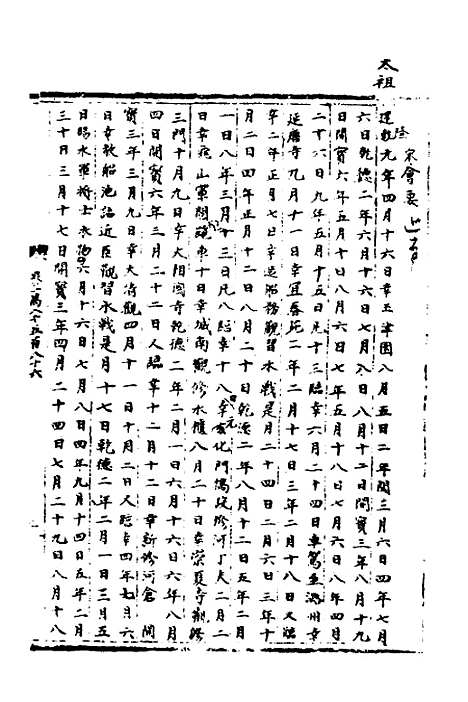 太祖
宋會要
建隆元年四月十六日幸玉津園八月五日二年閏三月六日四年七月
六日乾德二年六月十六日七月八日八月十二日開寶三年八月十九
日開寶六年五月十日八月六日七年五月十八日七月六日八年四月
二十六日九年五月十五日凡十三臨幸六月二十四日車駕至潞州幸
延慶寺九月十一日幸宜春苑二年二月十七日三年二月十八日又臨
幸二年正月七日幸造船務觀習水戰是月二十四日二月六日三年十
月二日四年正月十二日八月二十日乾德二年八月十二日五年二月
一日八年三月十三日凡八臨幸十八日幸玄化門陽役修河丁夫二月二
日幸飛山軍閱砲車十日幸城南觀修水櫃八月二十日幸崇夏寺觀修
三門十月九日幸太陽園寺乾德二年二月一日六月十六日六年八月
四日開寶六年三月二十二日又臨幸十二月十二日幸新修河倉 開
寶三年三月九日幸大清觀四月十一日十月二日又臨幸四年七月六
日幸教船池詔近臣觀習水戰是月十七日乾德二年二月一日三月五
日賜水軍將士衣物六月十六日七月八日四年九月十四日五年二月
三十日三月十七日開寶三年四月二十四日七月二十九日八月十八
卷二萬八千五百八十六